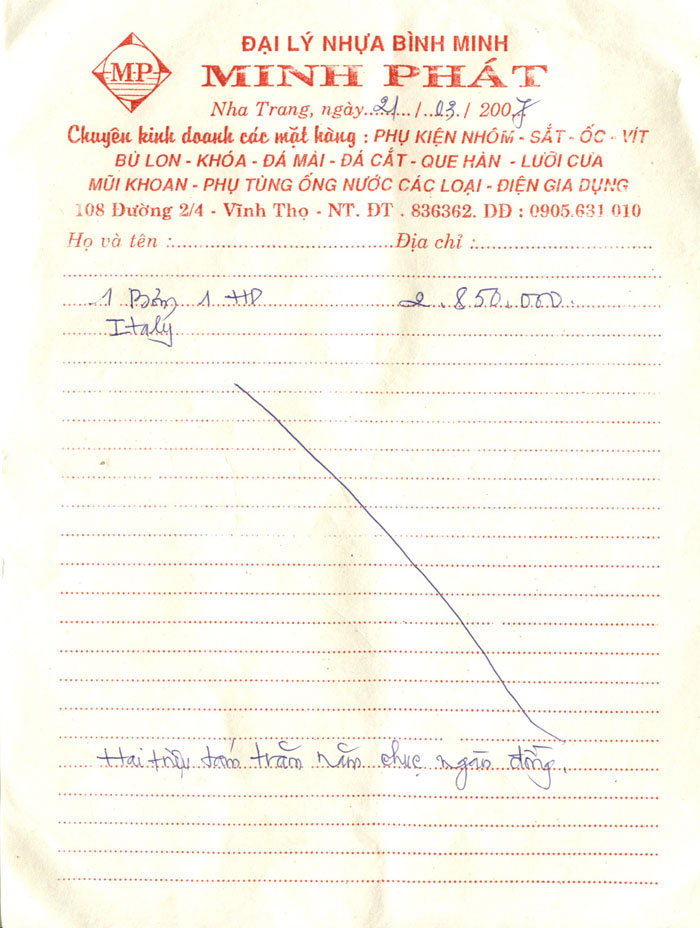 MP
ĐẠI LÝ NHỰA BÌNH MINH
MINH PHÁT
Nha Trang, ngày 21 / 03 / 2007
Chuyên kinh doanh các mặt hàng : PHỤ KIỆN NHÔM - SẮT - ỐC - VÍT
BÙ LON - KHÓA - ĐÁ MÀI - ĐÁ CẮT - QUE HÀN - LƯỠI CƯA
MŨI KHOAN - PHỤ TÙNG ỐNG NƯỚC CÁC LOẠI - ĐIỆN GIA DỤNG
108 Đường 2/4 - Vĩnh Thọ - NT. ĐT . 836362. DĐ : 0905.631 010
Họ và tên :.......... Địa chỉ :..........
1 Bơm 1 HP 2.850.000.
Italy
Hai triệu tám trăm năm chục ngàn đồng.